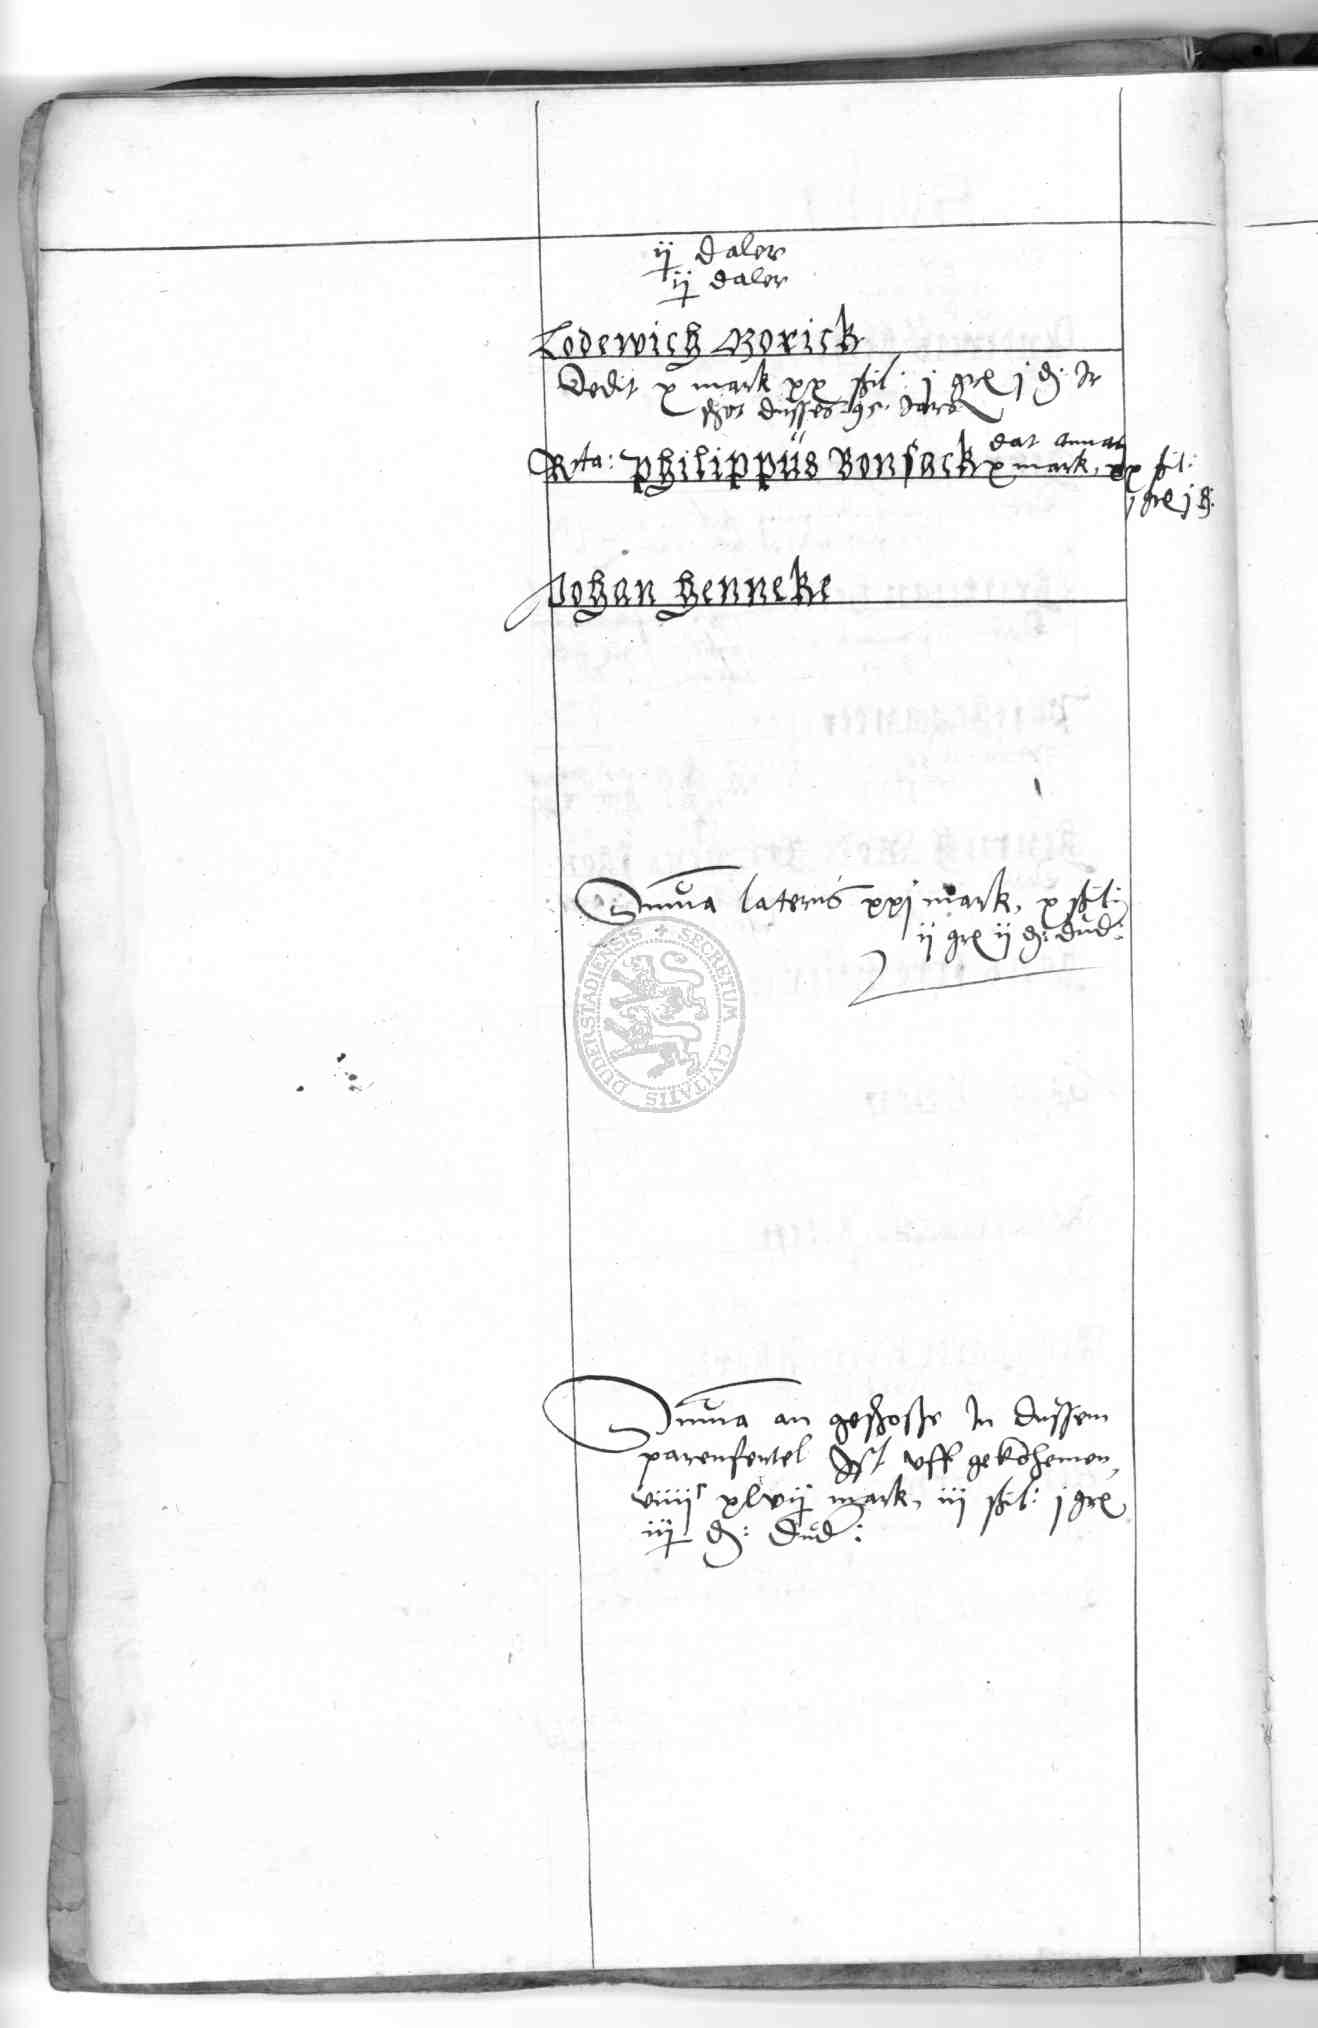 ij daler
ij daler
Lodewich Borick
Dedit x mark xx ßil: j gre j ₰: Ir
schot dusses 95. Jars
Rta: Philippüs Bonsack dat annat x mark, xx ßil:
j gre j ₰:
Johan Henneke
Summa lateris xxj mark, x ßil:
ij gre ij ₰: dud:
SECRETUM CIVITATIS DUDERSTADIENSIS
Summa an geschosse In dussem
parenfertel Ist uff gekohemen
viiijc xlvij mark, iij ßil: j gre
iij ₰: dud: